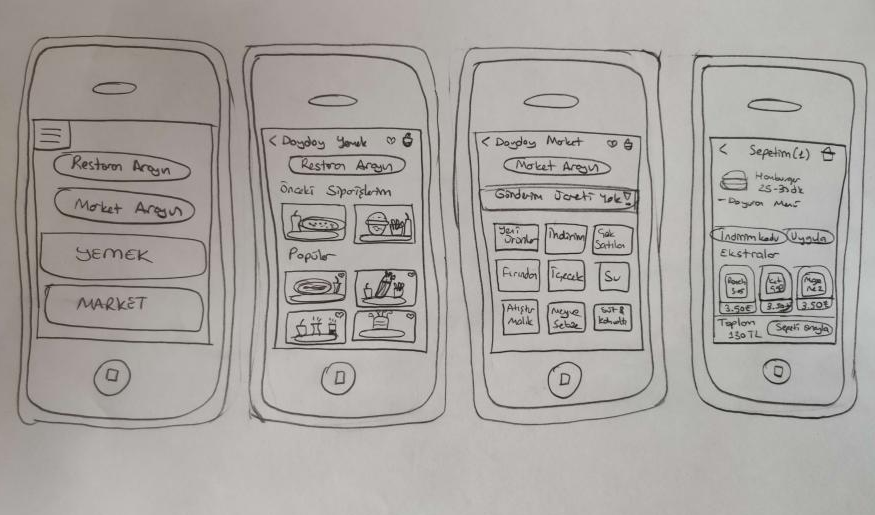 Restoran Arayın
Market Arayın
YEMEK
MARKET
< Doydoy Yemek
Restoran Arayın
Önceki Siparişlerim
Popüler
< Doydoy Market
Market Arayın
Gönderim Ücreti Yok!
Yeni
Ürünler
İndirim
Çok
Satılan
Fırından
İçecek
Su
Atıştır
malık
Meyve
Sebze
Süt &
Kahvaltı
< Sepetim(1)
Hamburger
25-35dk
- Doyuran Menü
İndirim kodu
Uygula
Ekstralar
Ranch
Sos
Mayo
nez
3.50₺
3.50₺
3.50₺
Toplam
130TL
Sepeti Onayla